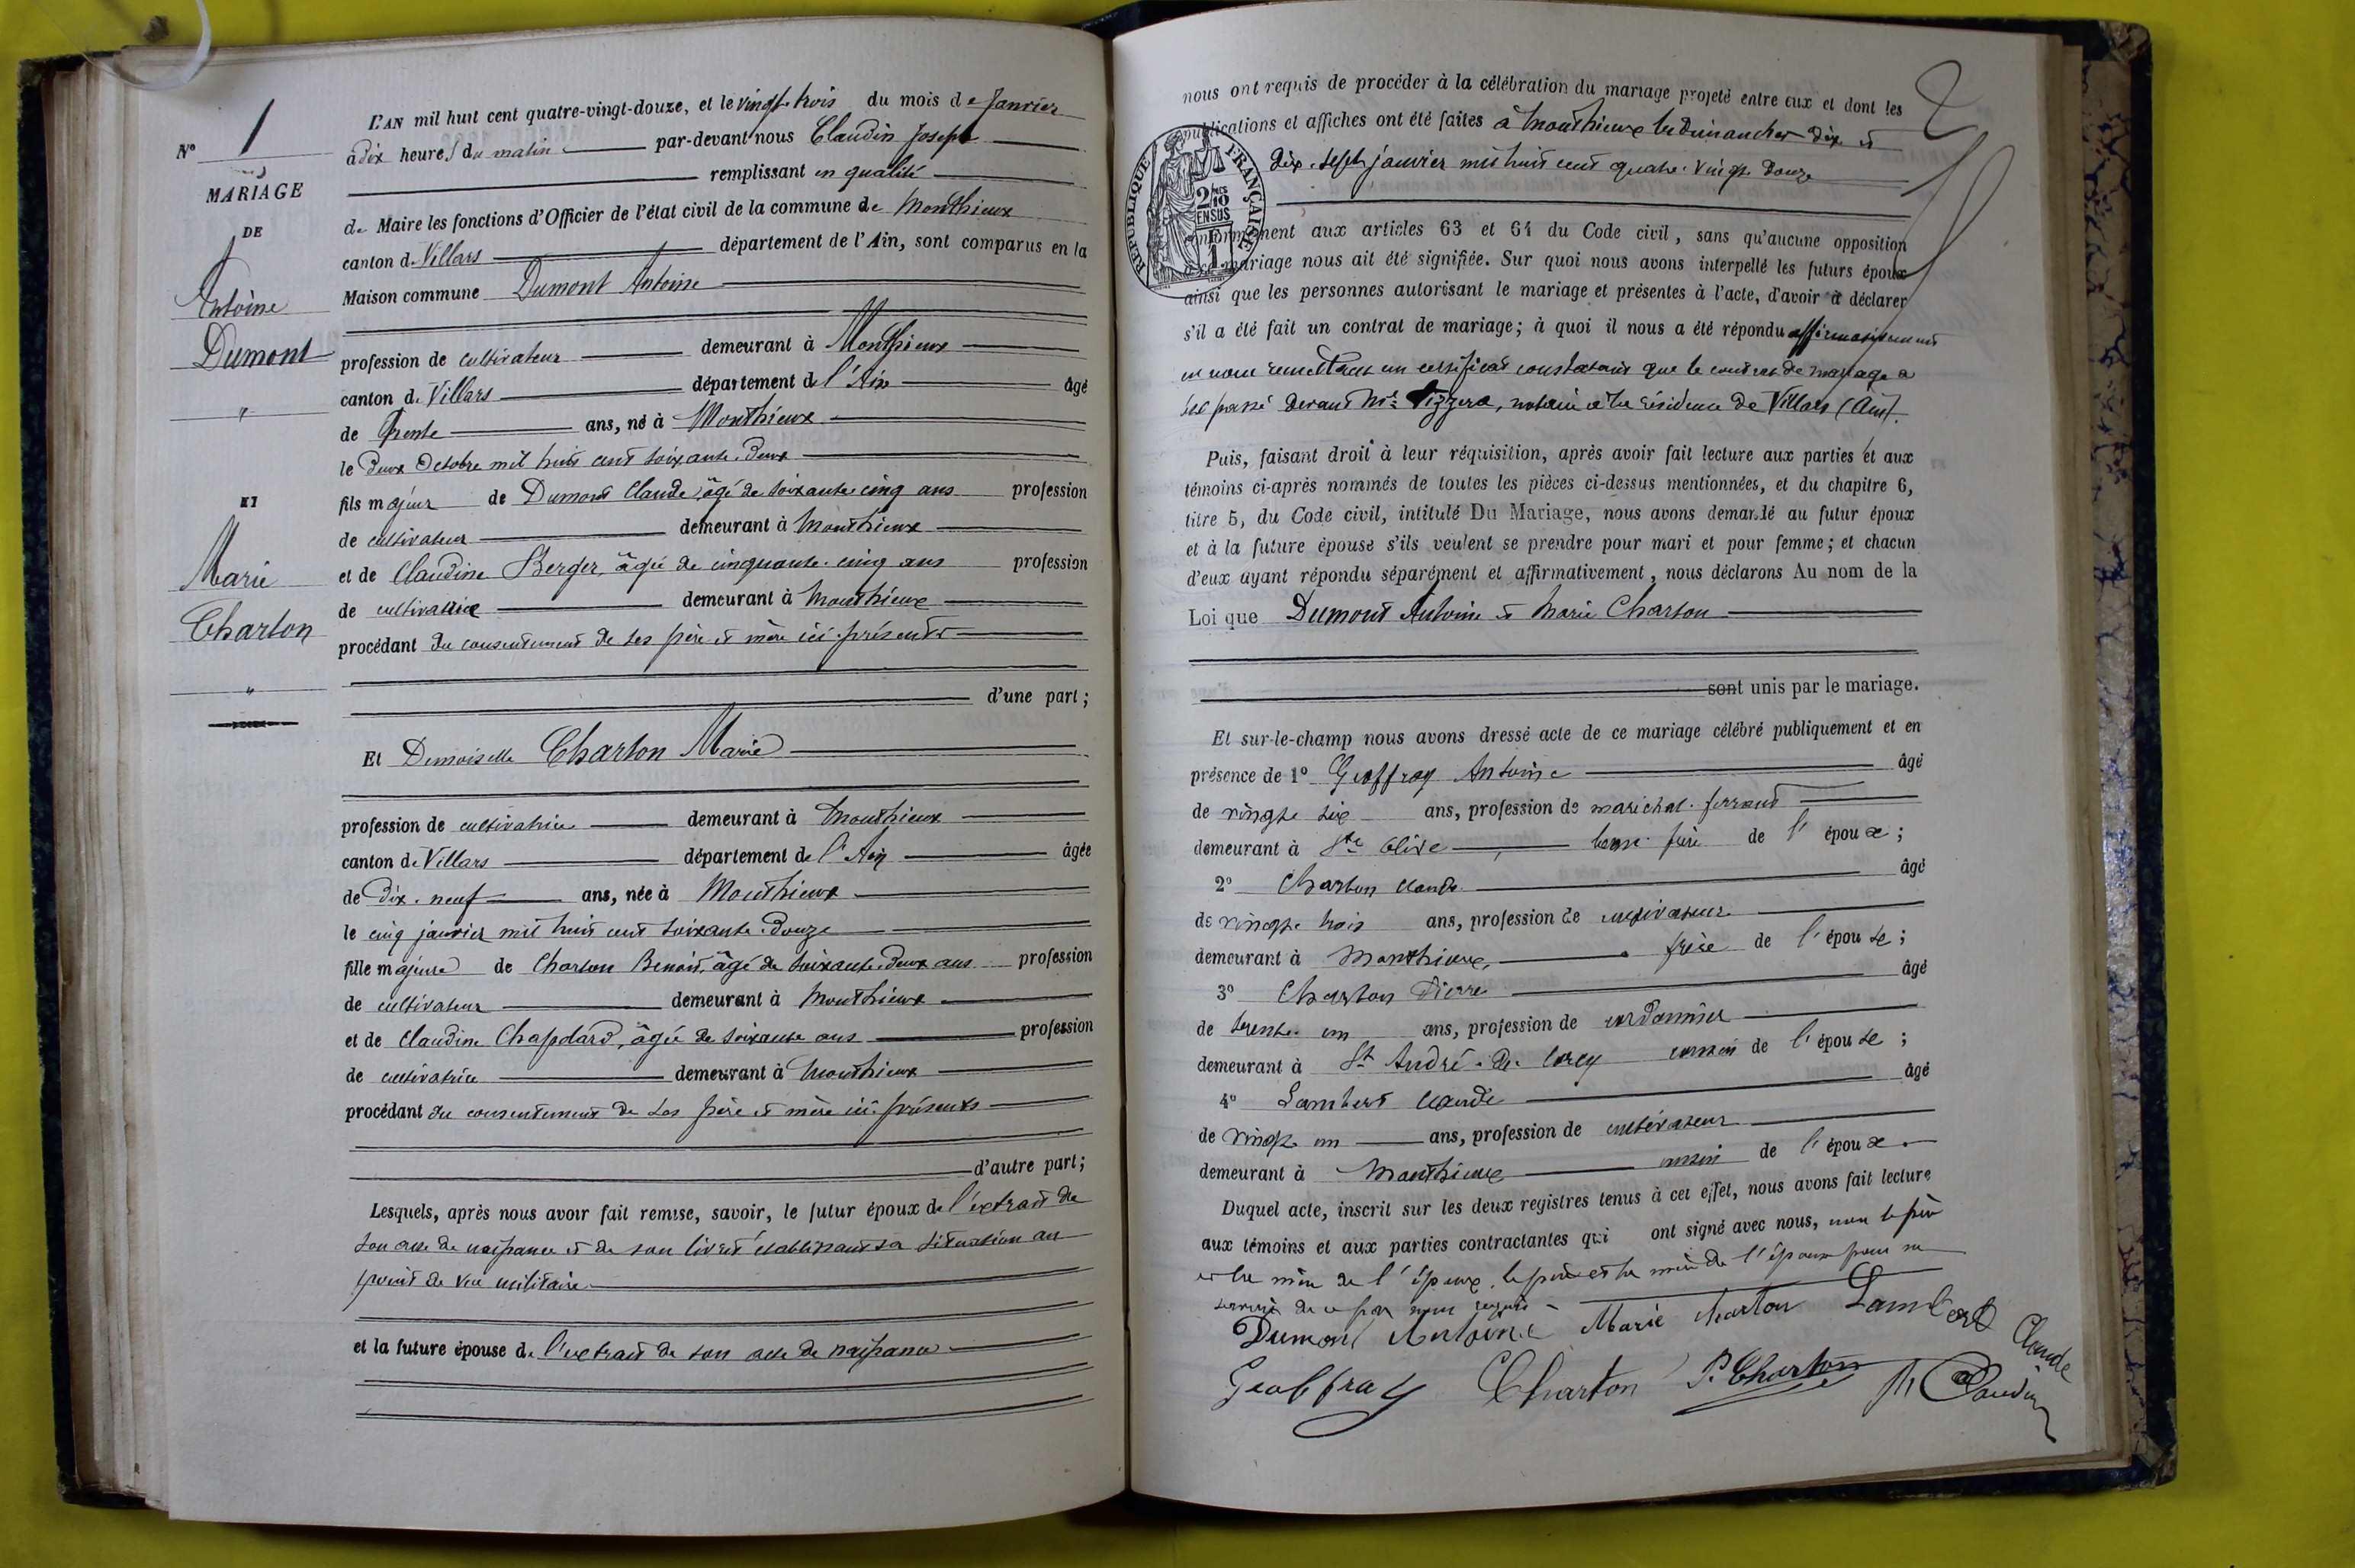 N° 1
MARIAGE
DE
Antoine
Dumont
"
ET
Marie
Charton
"
L'AN mil huit cent quatre-vingt-douze, et le vingt-trois du mois de Janvier
à dix heures du matin par-devant nous Claudin Joseph
remplissant en qualité
de Maire les fonctions d'Officier de l'état civil de la commune de Monthieux
canton de Villars département de l'Ain, sont comparus en la
Maison commune Dumont Antoine
profession de cultivateur demeurant à Monthieux
canton de Villars département de l'Ain âgé
de trente ans, né à Monthieux
le deux Octobre mil huit cent soixante-deux
fils majeur de Dumont Claude, âgé de soixante-cinq ans profession
de cultivateur demeurant à Monthieux
et de Claudine Berger, âgée de cinquante-cinq ans profession
de cultivatrice demeurant à Monthieux
procédant du consentement de ses père et mère ici-présents
d'une part;
Et Demoiselle Charton Marie
profession de cultivatrice demeurant à Monthieux
canton de Villars département de l'Ain âgée
de dix-neuf ans, née à Monthieux
le cinq janvier mil huit cent soixante-douze
fille majeure de Charton Benoit, âgé de soixante-deux ans profession
de cultivateur demeurant à Monthieux
et de Claudine Chapolard, âgée de soixante ans profession
de cultivatrice demeurant à Monthieux
procédant du consentement de ses père et mère ici-présents
d'autre part;
Lesquels, après nous avoir fait remise, savoir, le futur époux de l'extrait de
son acte de naissance et de son livret établissant sa situation au
point de vue militaire
et la future épouse de l'extrait de son acte de naissance
2
nous ont requis de procéder à la célébration du mariage projeté entre eux et dont les
publications et affiches ont été faites à Monthieux les dimanches dix et
dix-sept janvier mil huit cent quatre-vingt-douze
RÉPUBLIQUE FRANÇAISE
2/10 EN SUS
conformément aux articles 63 et 64 du Code civil, sans qu'aucune opposition
à ce mariage nous ait été signifiée. Sur quoi nous avons interpellé les futurs époux
ainsi que les personnes autorisant le mariage et présentes à l'acte, d'avoir à déclarer
s'il a été fait un contrat de mariage; à quoi il nous a été répondu affirmativement
en nous remettant un certificat constatant que le contrat de mariage a
été passé devant Me Vizzera, notaire à la résidence de Villars (Ain).
Puis, faisant droit à leur réquisition, après avoir fait lecture aux parties et aux
témoins ci-après nommés de toutes les pièces ci-dessus mentionnées, et du chapitre 6,
titre 5, du Code civil, intitulé Du Mariage, nous avons demandé au futur époux
et à la future épouse s'ils veulent se prendre pour mari et pour femme; et chacun
d'eux ayant répondu séparément et affirmativement, nous déclarons Au nom de la
Loi que Dumont Antoine et Marie Charton
sont unis par le mariage.
Et sur-le-champ nous avons dressé acte de ce mariage célébré publiquement et en
présence de 1° Geoffray Antoine âgé
de vingt-six ans, profession de maréchal-ferrand
demeurant à Ste Olive beau-frère de l'époux;
2° Charton Claude âgé
de vingt-trois ans, profession de cultivateur
demeurant à Monthieux, frère de l'épouse;
3° Charton Pierre âgé
de trente-un ans, profession de cordonnier
demeurant à St André-de-Corcy cousin de l'épouse;
4° Lambert Claude âgé
de vingt-un ans, profession de cultivateur
demeurant à Monthieux cousin de l'époux
Duquel acte, inscrit sur les deux registres tenus à cet effet, nous avons fait lecture
aux témoins et aux parties contractantes qui ont signé avec nous, non le père
et la mère de l'époux, le père et la mère de l'épouse pour ne
savoir de ce par nous requis
Dumont Antoine Marie Charton Lambert Claude
Geoffray Charton P. Charton Claudin